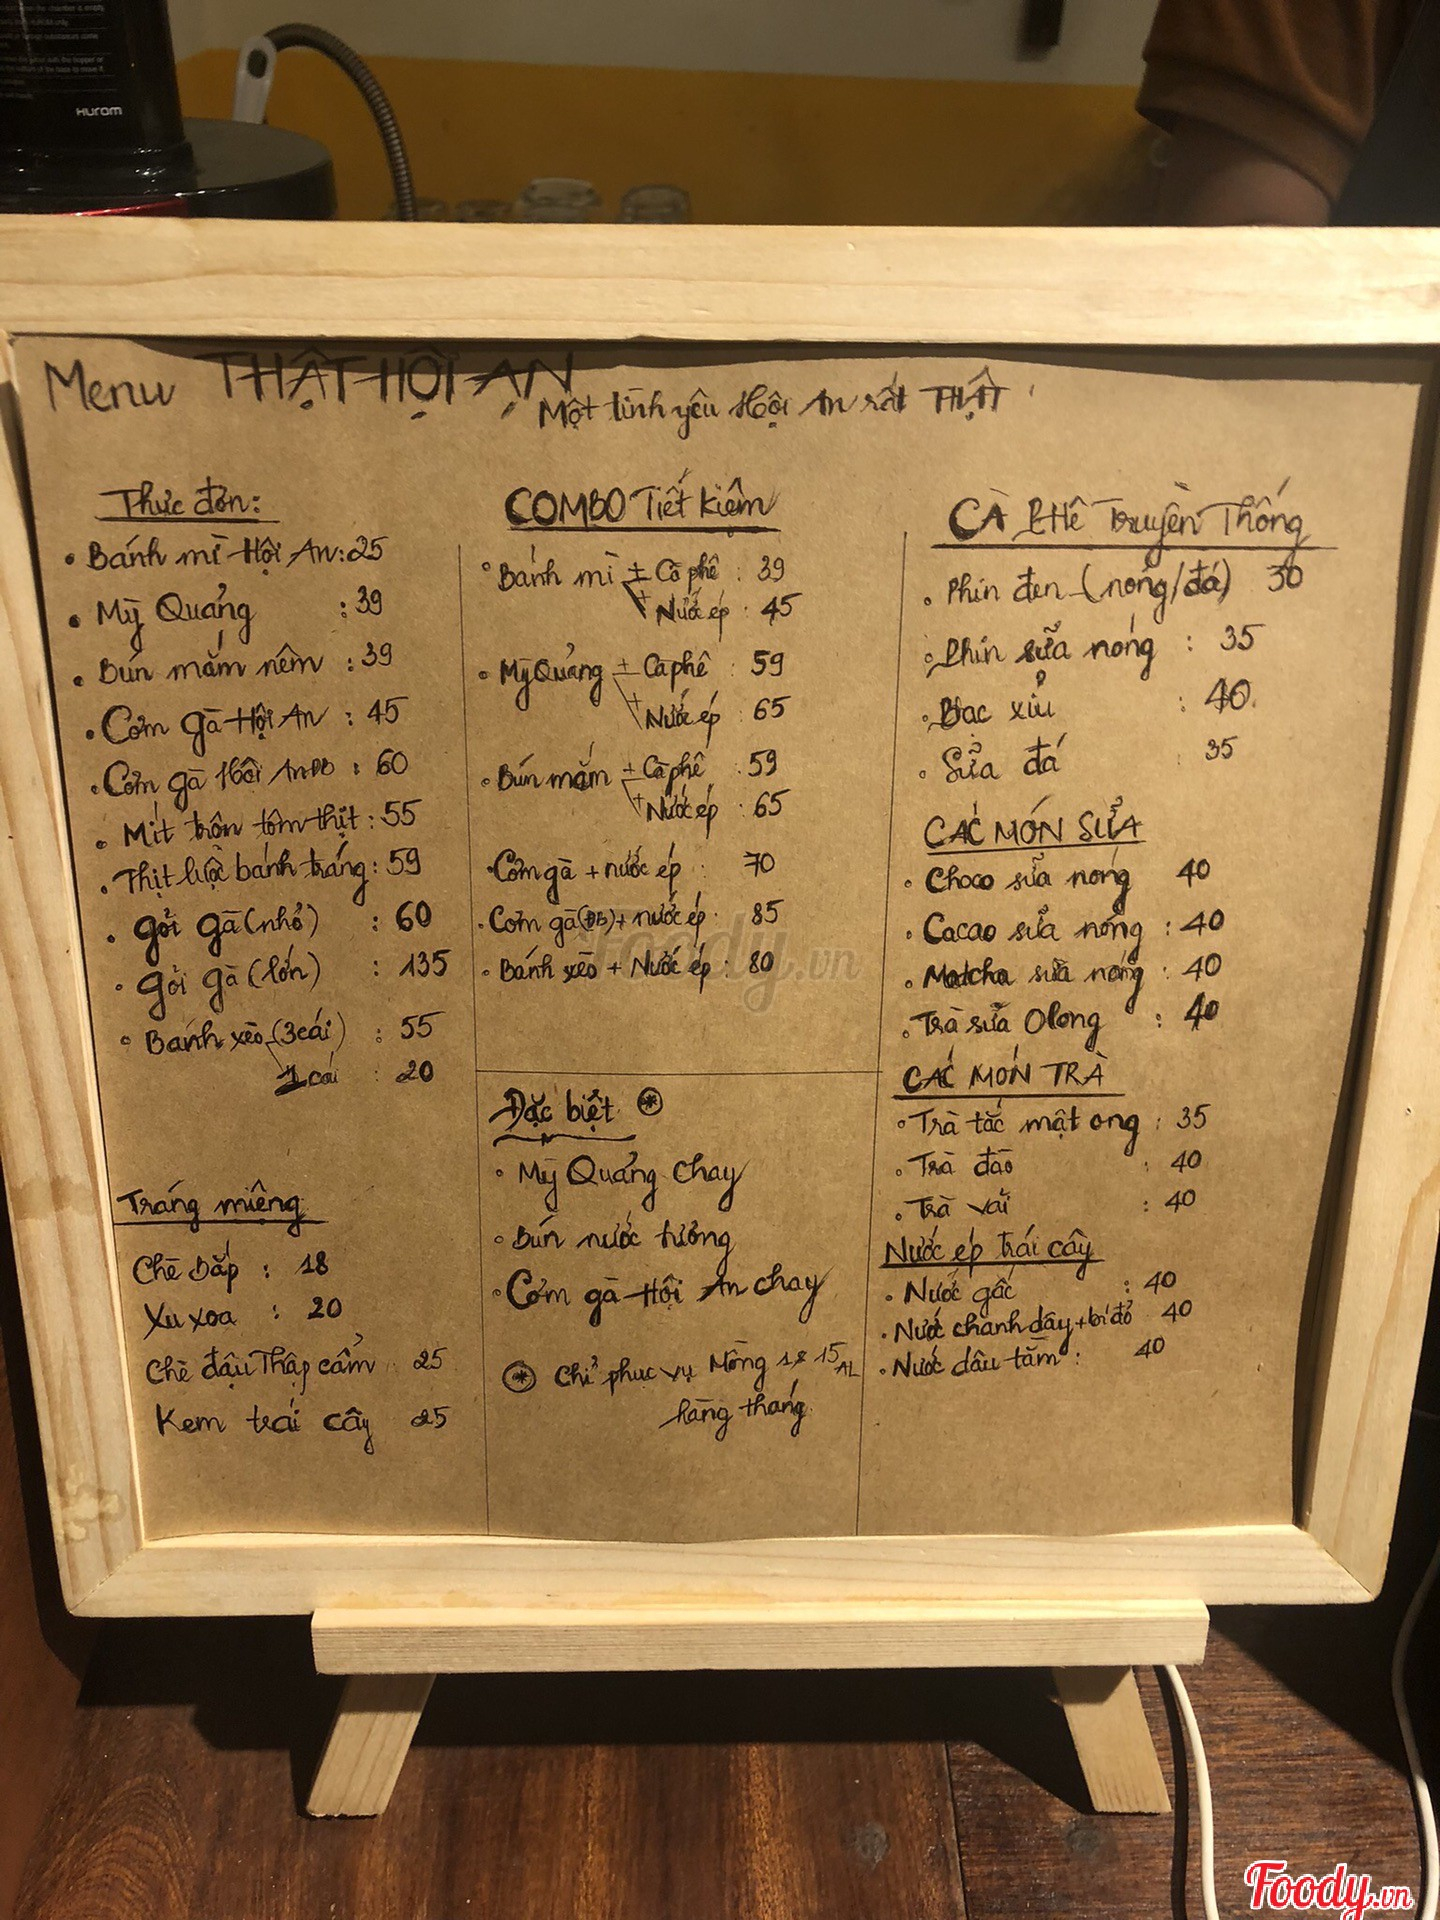 HUROM
Menu THẬT HỘI AN
Một tình yêu Hội An rất THẬT
Thực đơn:
• Bánh mì Hội An: 25
• Mỳ Quảng : 39
• Bún mắm nêm : 39
• Cơm gà Hội An : 45
• Cơm gà Hội An ĐB : 60
• Mít trộn tôm thịt : 55
• Thịt luộc bánh tráng : 59
• gỏi gà (nhỏ) : 60
• gỏi gà (lớn) : 135
• Bánh xèo (3 cái) : 55
1 cái : 20
Tráng miệng
Chè Bắp : 18
Xu xoa : 20
Chè đậu Thập cẩm 25
Kem trái cây 25
COMBO Tiết kiệm
• Bánh mì + Cà phê : 39
+ Nước ép : 45
• Mỳ Quảng + Cà phê : 59
+ Nước ép : 65
• Bún mắm + Cà phê : 59
+ Nước ép : 65
• Cơm gà + nước ép : 70
• Cơm gà (ĐB) + nước ép : 85
• Bánh xèo + Nước ép : 80
Đặc biệt *
• Mỳ Quảng Chay
• Bún nước tương
• Cơm gà Hội An chay
* Chỉ phục vụ Mồng 1 & 15 AL
hàng tháng
CÀ PHÊ Truyền Thống
• Phin đen (nóng/đá) 30
• Phin sữa nóng : 35
• Bạc xỉu : 40
• Sữa đá : 35
CÁC MÓN SỮA
• Choco sữa nóng 40
• Cacao sữa nóng : 40
• Matcha sữa nóng : 40
• Trà sữa Olong : 40
CÁC MÓN TRÀ
• Trà tắc mật ong : 35
• Trà đào : 40
• Trà vải : 40
Nước ép trái cây
• Nước gấc : 40
• Nước chanh dây + bí đỏ 40
• Nước dâu tằm : 40
Foody.vn
Foody.vn